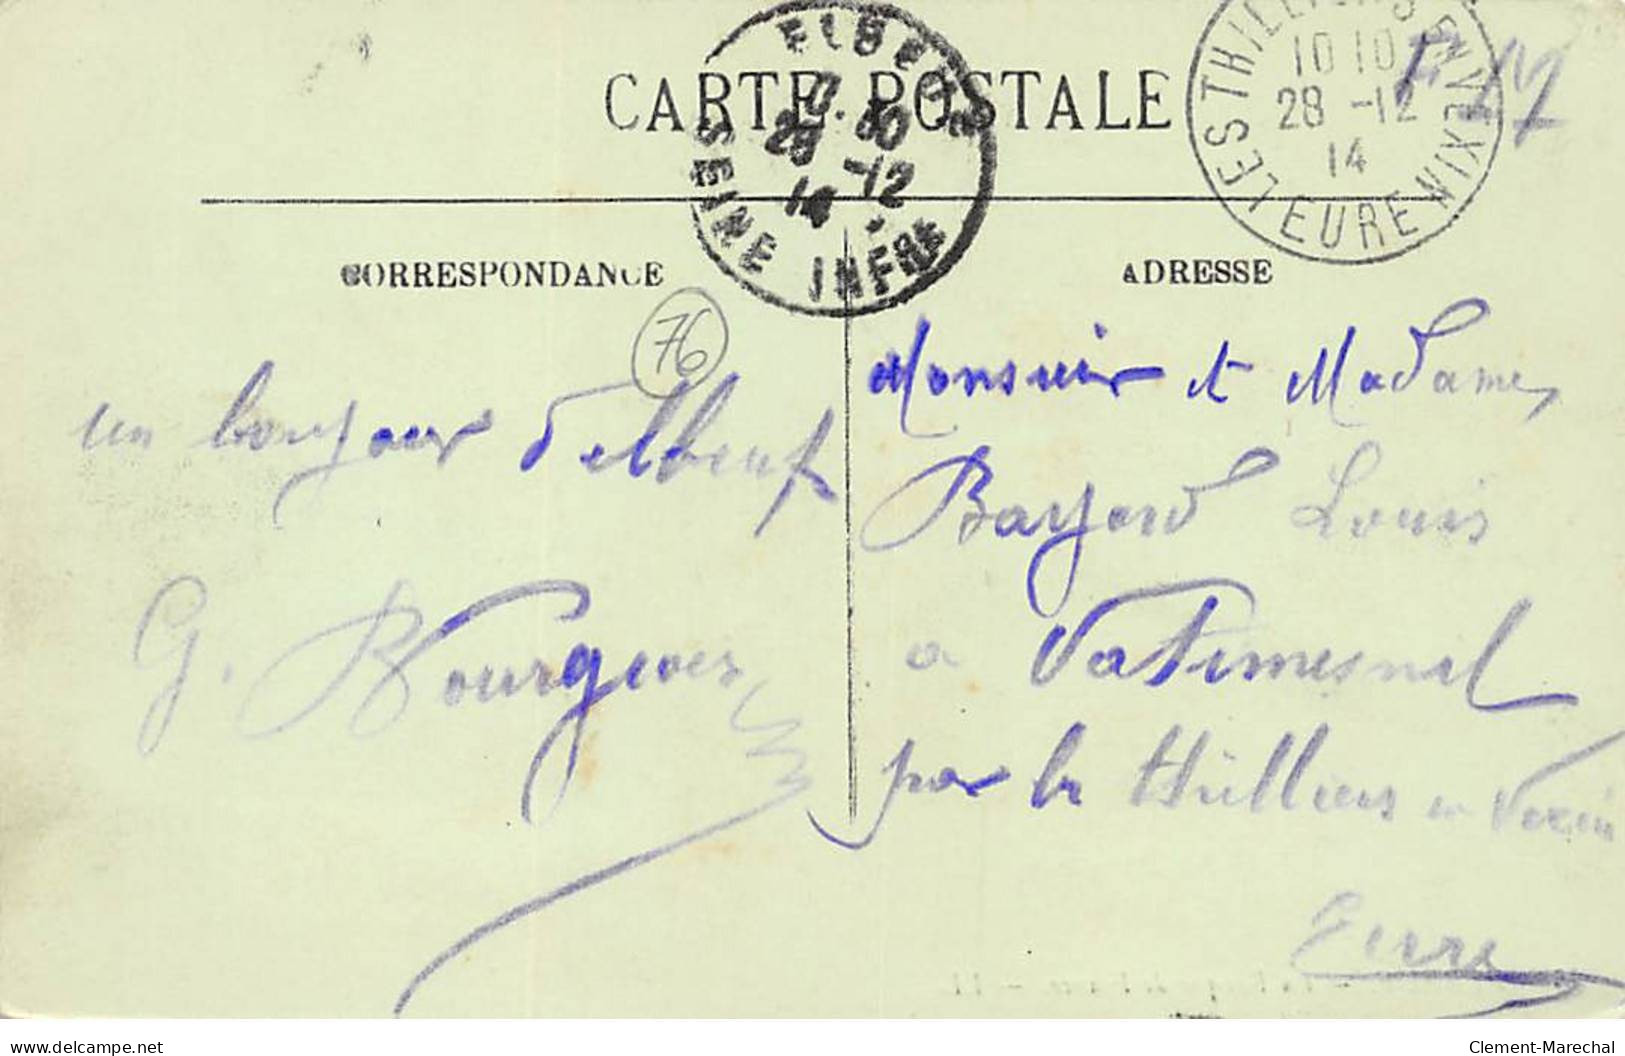 CARTE POSTALE
ELBEUF
SEINE INFRE
-12
14
LES THILLIERS EN VEXIN
10 10
28 -12
14
EURE
F M
CORRESPONDANCE
ADRESSE
76
un bonjour d'elbeuf
G. Bourgeois
Monsieur et Madame
Bayard Louis
a Vatimesnil
par le Thilliers en Vexin
Eure
delcampe.net
Clement-Marechal